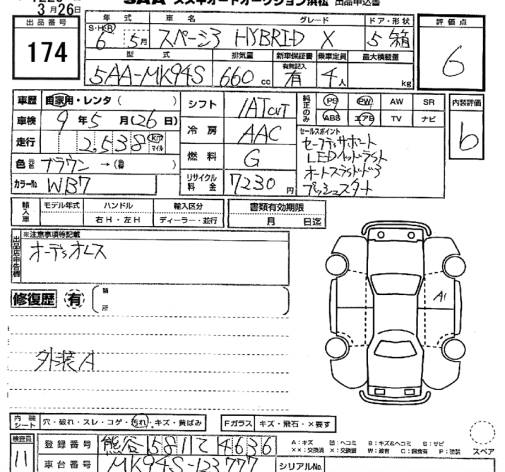 SAA スズキオートオークション浜松 出品申込書
3月26日
出品番号 年式 車名 グレード ドア・形状 評価点
174
S・H・R 6年 5月 スペーシア HYBRID X 5 箱
6
型式 排気量 新車保証書 乗車定員 最大積載量
有無記入
5AA-MK94S 660cc 有 4人 kg
車歴 自家用・レンタ( ) シフト IAT 純正のみ PS PW AW SR 内装評価
車検 9年5月(26日) ABS エアB TV ナビ
b
冷房 AAC セールスポイント
走行 2,538 km マイル セーフティサポート
LEDヘッドライト
色 ブラウン→( ) 燃料 G オートスライドドア
カラーNo. WB7 リサイクル料金 7230円 プッシュスタート
輸入車 モデル年式 ハンドル 輸入区分 書類有効期限
右H・左H ディーラー・並行 月 日迄
出品店申告欄 ※注意事項特記載
オーディオレス
修復歴 有 箇所
A1
外装A
内装シート 穴・破れ・スレ・コゲ・汚れ・キズ・黄ばみ Fガラス キズ・飛石・×要す スペア
検査員 11 登録番号 熊谷 581 て 4636
A:キズ 凹:ヘコミ B:キズ&ヘコミ S:サビ
××:交換済 W:波有 C:腐食有 P:塗装
車台番号 MK94S-123777 シリアルNo.